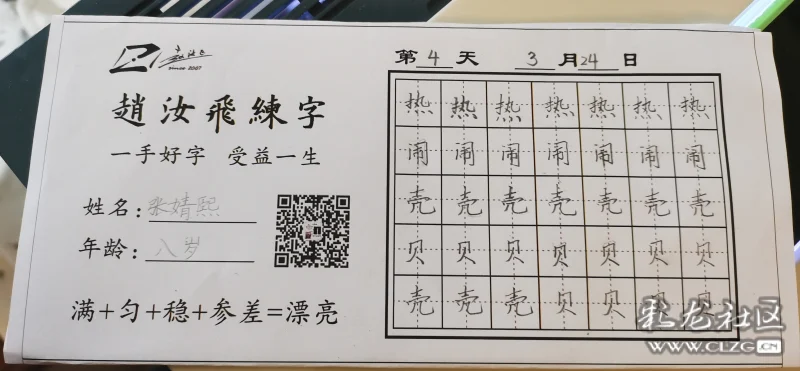 since 2007
第 4 天 3 月 24 日
趙汝飛練字
一手好字 受益一生
姓名：张婧熙
年龄：八岁
满+匀+稳+参差=漂亮
热 热 热 热 热 热 热
闹 闹 闹 闹 闹 闹 闹
壳 壳 壳 壳 壳 壳 壳
贝 贝 贝 贝 贝 贝 贝
壳 壳 壳 贝 贝 贝 贝
彩龙社区
WWW.CLZG.CN